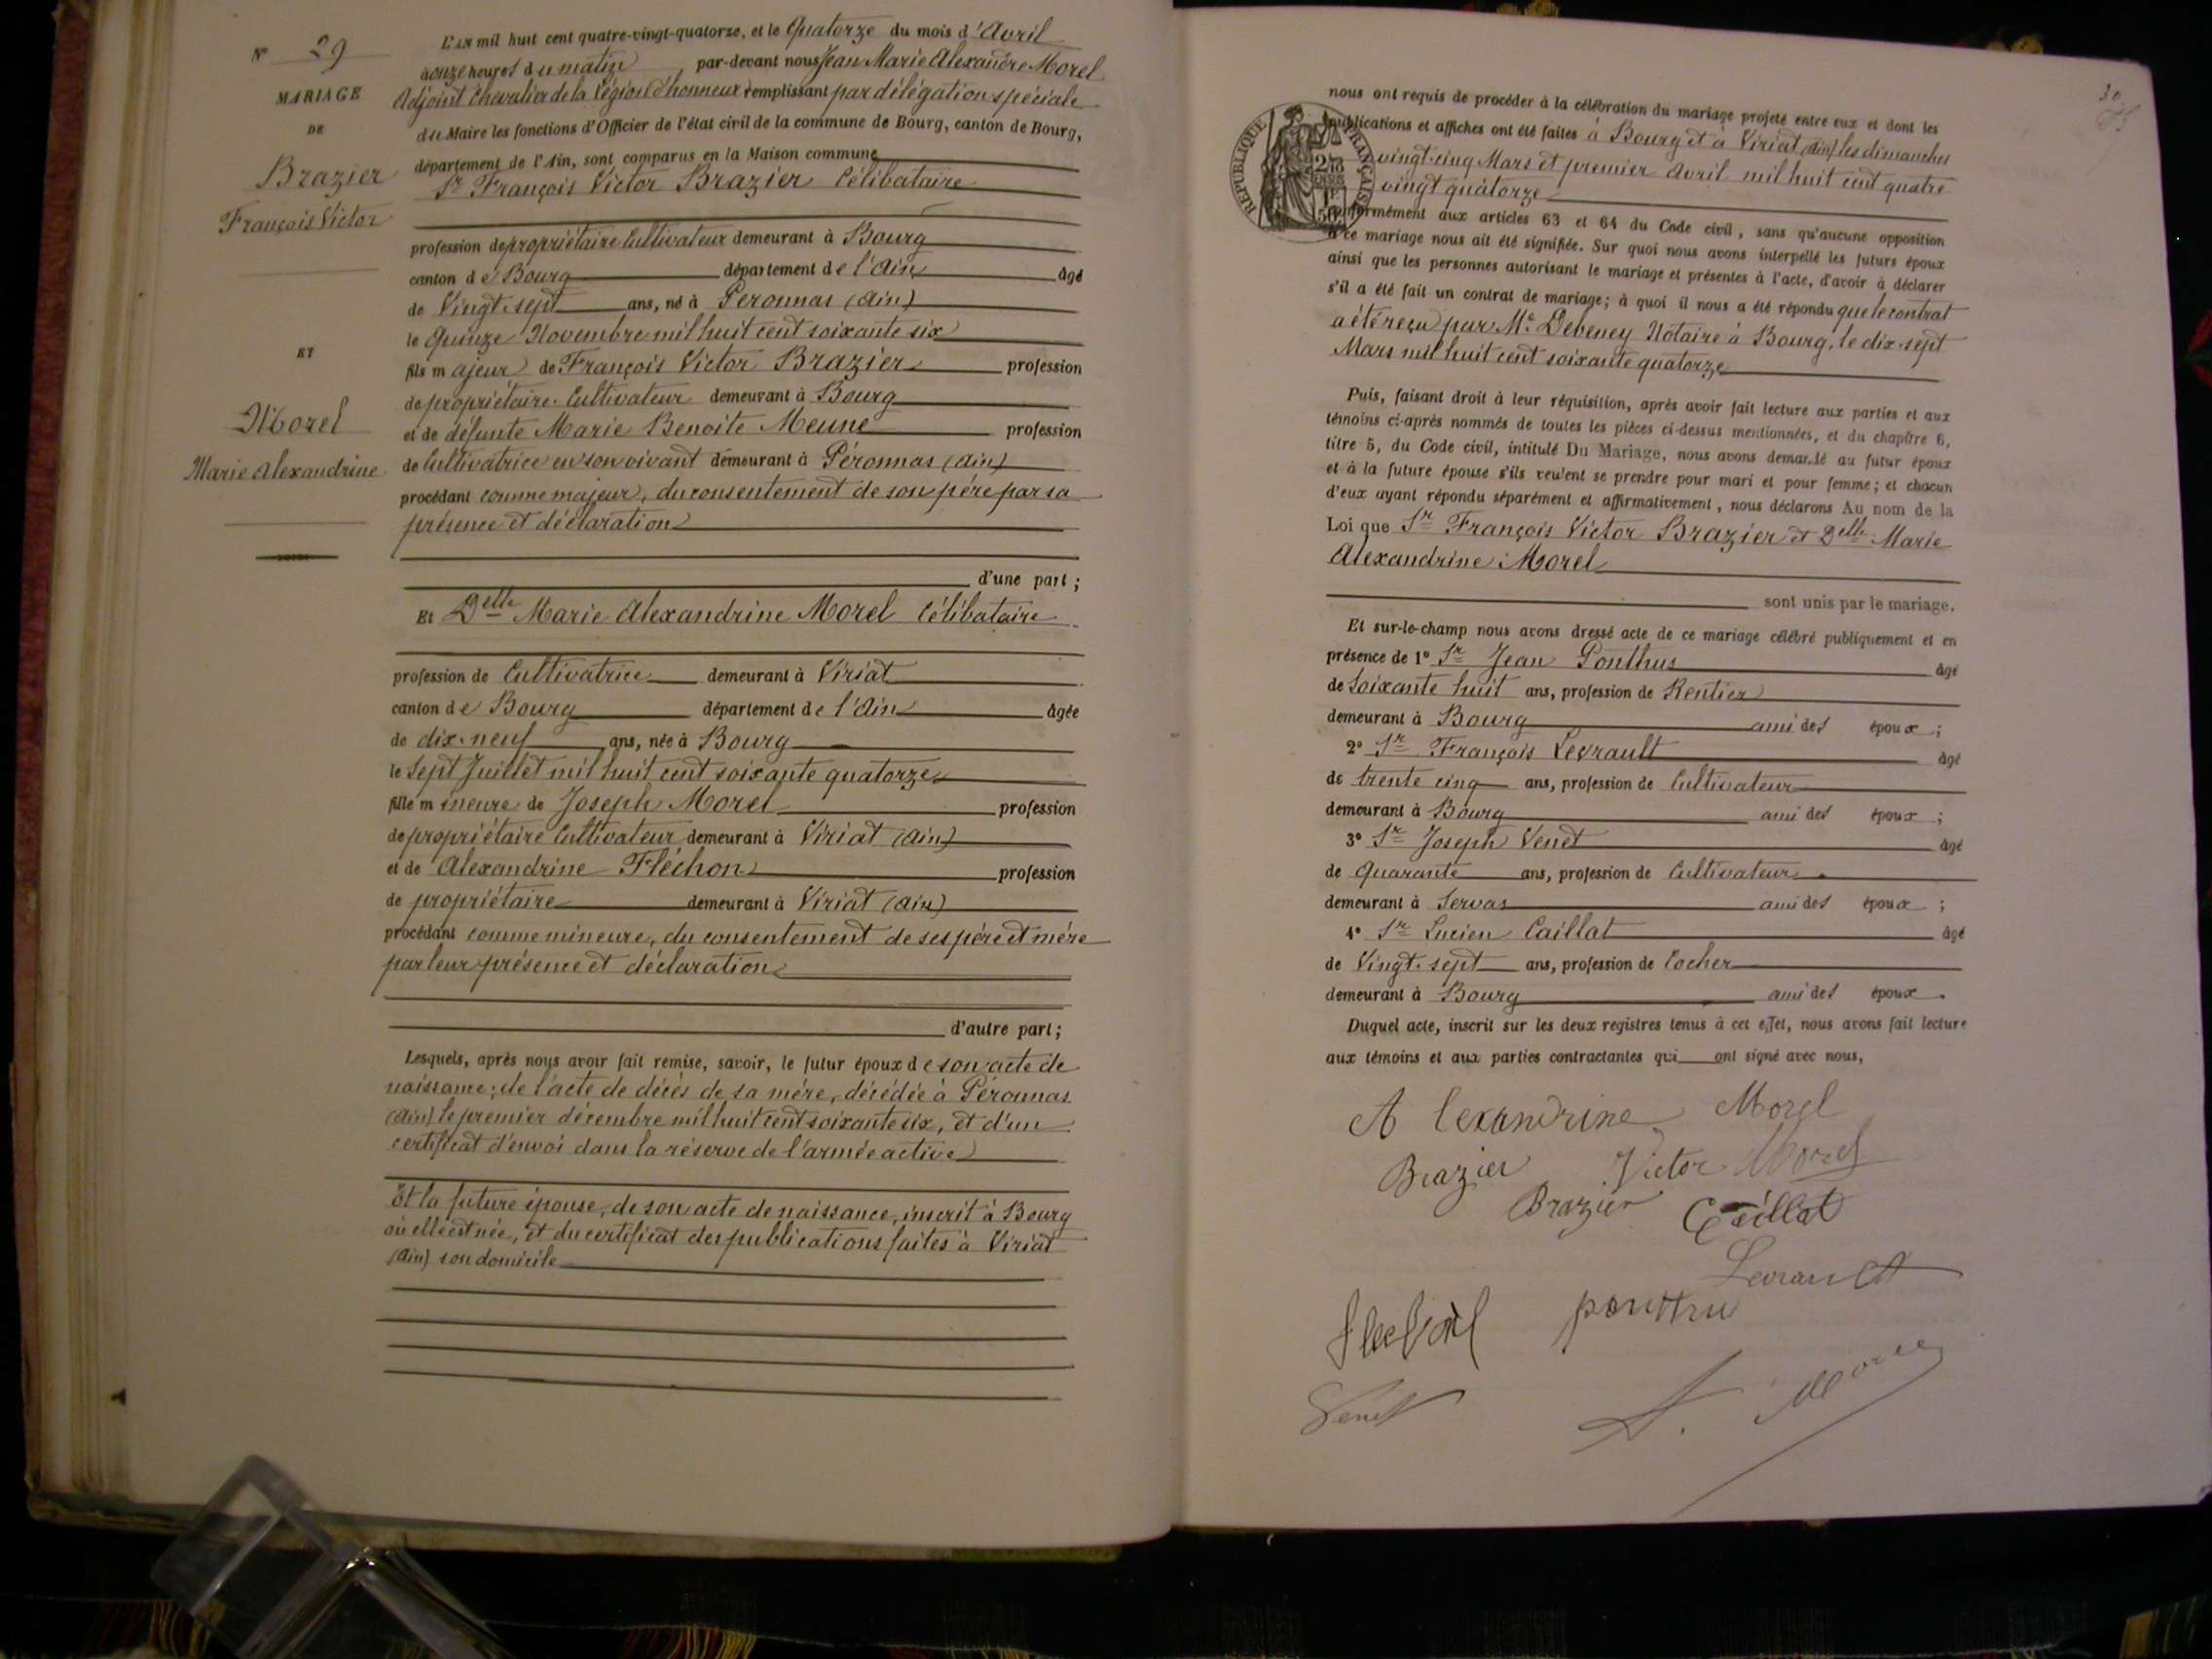 N° 29
MARIAGE
DE
Brazier
François Victor
ET
Morel
Marie Alexandrine
L'AN mil huit cent quatre-vingt-quatorze, et le Quatorze du mois d'Avril
à onze heures du matin par-devant nous Jean Marie Alexandre Morel
Adjoint Chevalier de la Légion d'honneur remplissant par délégation spéciale
du Maire les fonctions d'Officier de l'état civil de la commune de Bourg, canton de Bourg,
département de l'Ain, sont comparus en la Maison commune
Sr François Victor Brazier Célibataire
profession de propriétaire Cultivateur demeurant à Bourg
canton de Bourg département de l'Ain âgé
de Vingt-sept ans, né à Peronnas (Ain)
le Quinze Novembre mil huit cent soixante six
fils majeur de François Victor Brazier profession
de propriétaire Cultivateur demeurant à Bourg
et de défunte Marie Benoite Meune profession
de Cultivatrice en son vivant demeurant à Péronnas (Ain)
procédant comme majeur, du consentement de son père par sa
présence et déclaration
d'une part ;
Et Delle Marie Alexandrine Morel Célibataire
profession de Cultivatrice demeurant à Viriat
canton de Bourg département de l'Ain âgée
de dix-neuf ans, née à Bourg
le Sept Juillet mil huit cent soixante quatorze
fille mineure de Joseph Morel profession
de propriétaire Cultivateur demeurant à Viriat (Ain)
et de Alexandrine Fléchon profession
de propriétaire demeurant à Viriat (Ain)
procédant comme mineure, du consentement de ses père et mère
par leur présence et déclaration
d'autre part ;
Lesquels, après nous avoir fait remise, savoir, le futur époux de son acte de
naissance ; de l'acte de décès de sa mère, décédée à Péronnas
(Ain) le premier décembre mil huit cent soixante six, et d'un
certificat d'envoi dans la réserve de l'armée active
Et la future épouse, de son acte de naissance, inscrit à Bourg
où elle est née, et du certificat des publications faites à Viriat
(Ain) son domicile
30
REPUBLIQUE FRANÇAISE
nous ont requis de procéder à la célébration du mariage projeté entre eux et dont les
publications et affiches ont été faites à Bourg et à Viriat (Ain) les dimanches
vingt-cinq Mars et premier Avril mil huit cent quatre
vingt quatorze
conformément aux articles 63 et 64 du Code civil, sans qu'aucune opposition
à ce mariage nous ait été signifiée. Sur quoi nous avons interpellé les futurs époux
ainsi que les personnes autorisant le mariage et présentes à l'acte, d'avoir à déclarer
s'il a été fait un contrat de mariage ; à quoi il nous a été répondu que le contrat
a été reçu par Me Debeney Notaire à Bourg, le dix-sept
Mars mil huit cent soixante quatorze
Puis, faisant droit à leur réquisition, après avoir fait lecture aux parties et aux
témoins ci-après nommés de toutes les pièces ci-dessus mentionnées, et du chapitre 6,
titre 5, du Code civil, intitulé Du Mariage, nous avons demandé au futur époux
et à la future épouse s'ils veulent se prendre pour mari et pour femme ; et chacun
d'eux ayant répondu séparément et affirmativement, nous déclarons Au nom de la
Loi que Sr François Victor Brazier et Delle Marie
Alexandrine Morel
sont unis par le mariage.
Et sur-le-champ nous avons dressé acte de ce mariage célébré publiquement et en
présence de 1° Sr Jean Ponthus âgé
de Soixante huit ans, profession de Rentier
demeurant à Bourg ami des époux ;
2° Sr François Levrault âgé
de trente cinq ans, profession de Cultivateur
demeurant à Bourg ami des époux ;
3° Sr Joseph Venet âgé
de Quarante ans, profession de Cultivateur
demeurant à Servas ami des époux ;
4° Sr Lucien Caillat âgé
de Vingt-sept ans, profession de Cocher
demeurant à Bourg ami des époux.
Duquel acte, inscrit sur les deux registres tenus à cet effet, nous avons fait lecture
aux témoins et aux parties contractantes qui ont signé avec nous,
Alexandrine Morel
Brazier Victor Morel
Brazier Caillat
Levrault
ponthu
Venet A. Morel